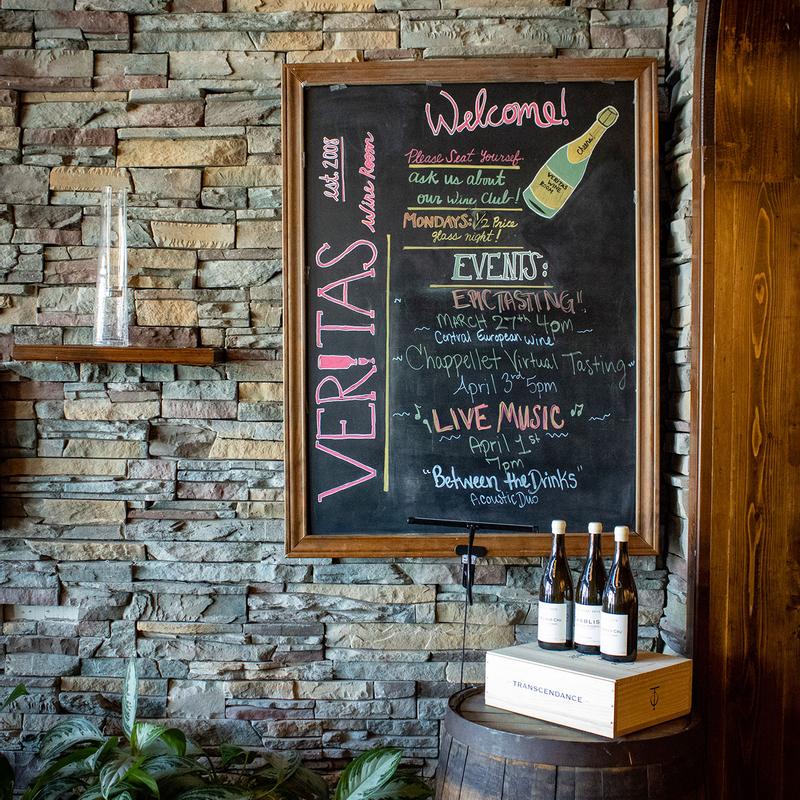 VERITAS
est. 2008
Wine Room
Welcome!
Please Seat Yourself
ask us about
our Wine Club-!
MONDAYS: 1/2 Price
glass night!
Cheers!
VERITAS
WINE
ROOM
EVENTS:
EPIC TASTING"
MARCH 27th 4pm
Central European Wine
~Chappellet Virtual Tasting~
April 3rd 5pm
LIVE MUSIC
April 1st
7pm
"Between the Drinks"
Acoustic Duo
TRANSCENDANCE